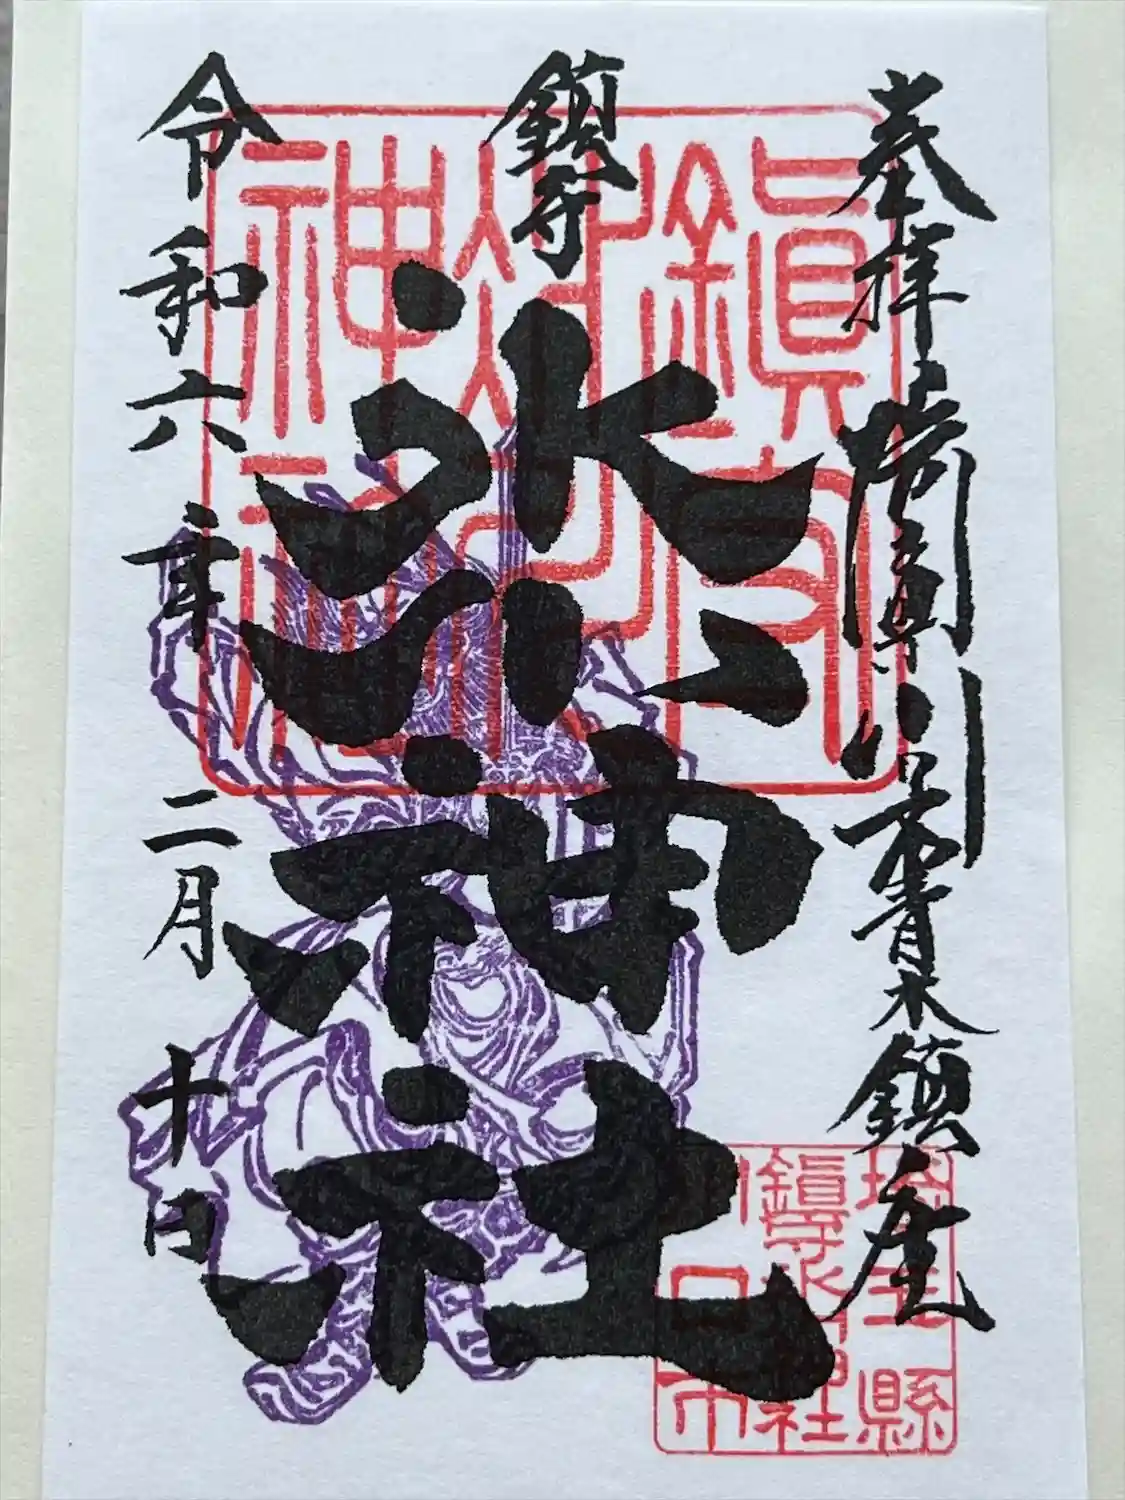 奉拝
埼玉県川口市青木鎮座
鎮守
氷川神社
令和六年二月十日
鎮守
氷川
神社
埼玉縣
鎮守氷川神社
川口市